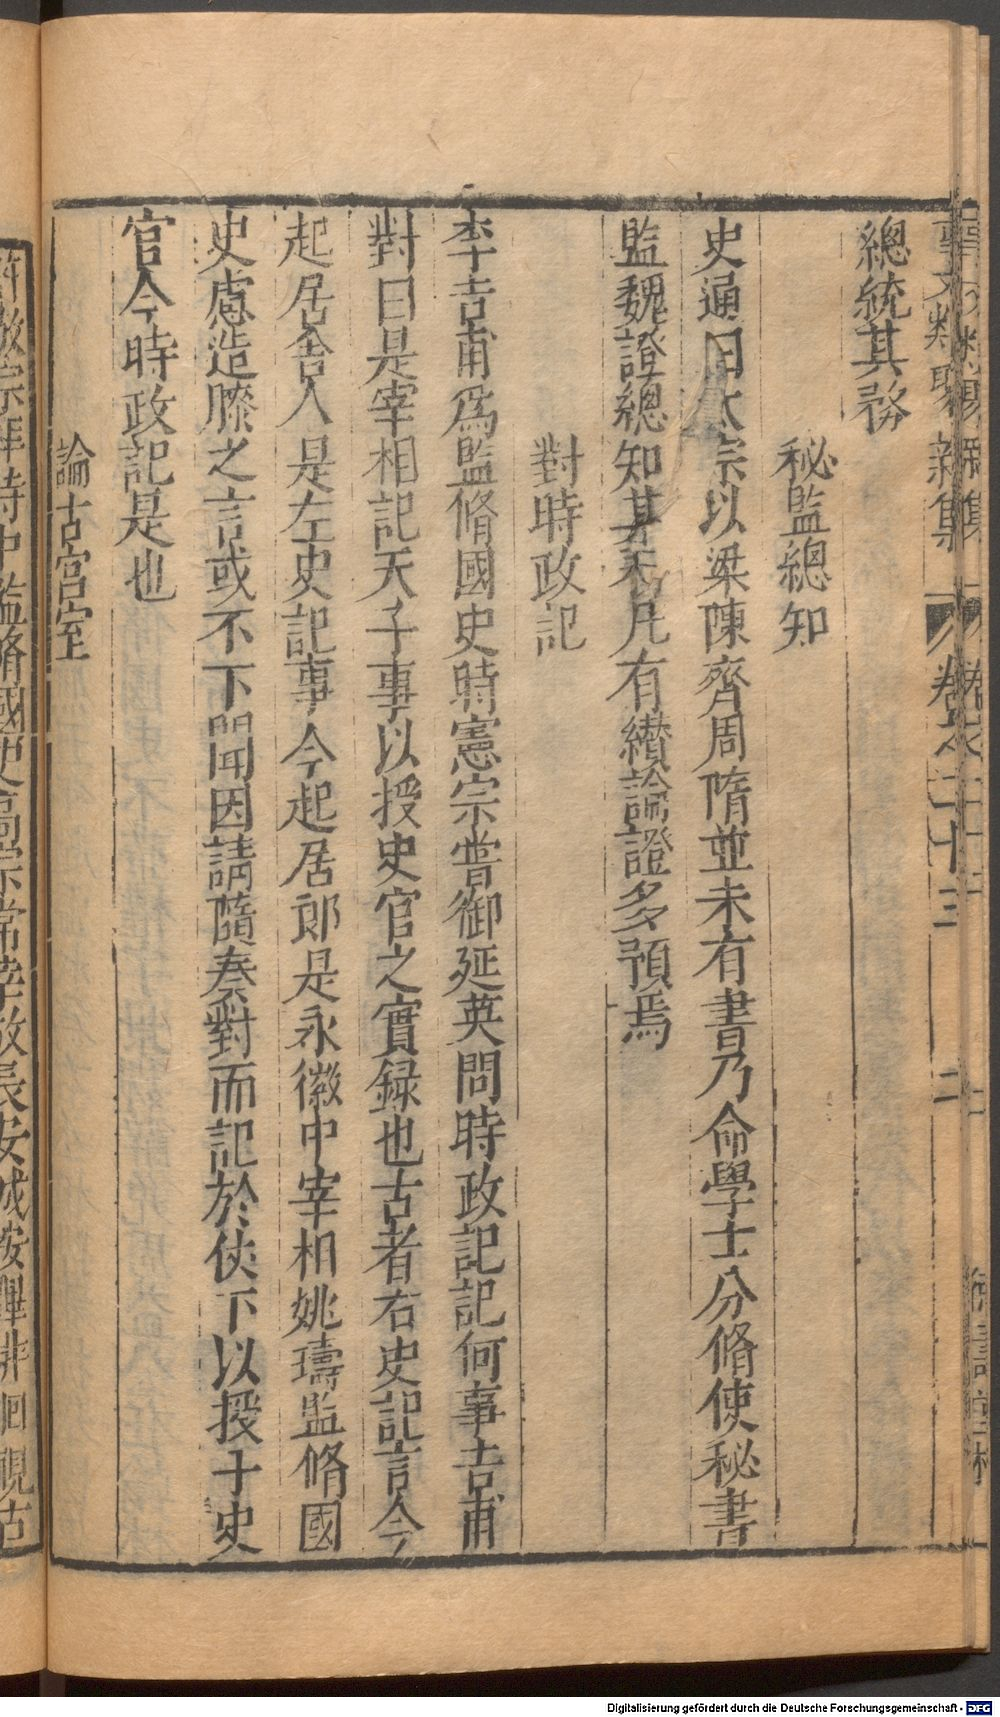 事文類聚新集 卷之二十三 二
總統其務
秘監總知
史通曰太宗以梁陳齊周隋並未有書乃命學士分脩使秘書
監魏證總知其務凡有纉論證多預焉
對時政記
李吉甫爲監脩國史時憲宗甞御延英問時政記記何事吉甫
對曰是宰相記天子事以授史官之實録也古者右史記言今
起居舍人是左史記事今起居郎是永徽中宰相姚璹監脩國
史慮造膝之言或不下聞因請隨奏對而記於伏下以授于史
官今時政記是也
論古宮室
許敬宗拜侍中監脩國史高宗常幸故長安城按蹕徘徊視古
Digitalisierung gefördert durch die Deutsche Forschungsgemeinschaft - DFG